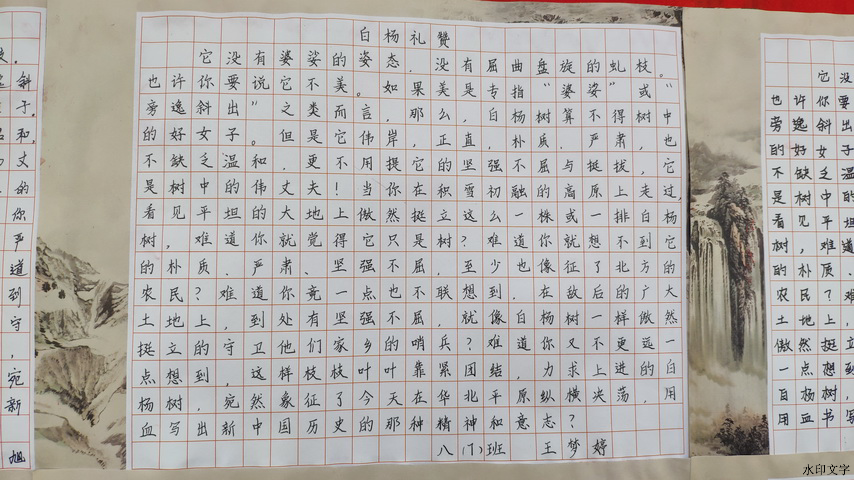 白杨礼赞
它没有婆娑的姿态，没有屈曲盘旋的虬枝。
也许你要说它不美。如果美是专指“婆娑”或“
旁逸斜出”之类而言，那么，白杨树算不得树中
的好女子。但是它伟岸，正直，朴质，严肃，也
不缺乏温和，更不用提它的坚强不屈与挺拔，它
是树中的伟丈夫！当你在积雪初融的高原上走过，
看见平坦的大地上傲然挺立这么一株或一排白杨
树，难道你就觉得它只是树？难道你就想不到它
的朴质、严肃、坚强不屈，至少也像征了北方的
农民？难道你竟一点也不联想到，在敌后的广大
土地上，到处有坚强不屈，就像白杨树一样傲然
挺立的守卫他们家乡的哨兵？难道你又不更远一
点想到，这样枝枝叶叶靠紧团结，力求上进的白
杨树，宛然象征了今天在华北平原纵横决荡，用
血写出新中国历史的那种精神和意志？
八（1）班 王梦婷
它没
也许你要
旁逸斜出
的好女子
不缺乏温
是树中
看见平坦
树，难道
的朴质、
农民？难
土地上，
傲然挺立
一点想到
白杨树，
用血书写
斜
子
和，
丈
的
你
严
道
到
守
，
宛
新
旭
水印文字